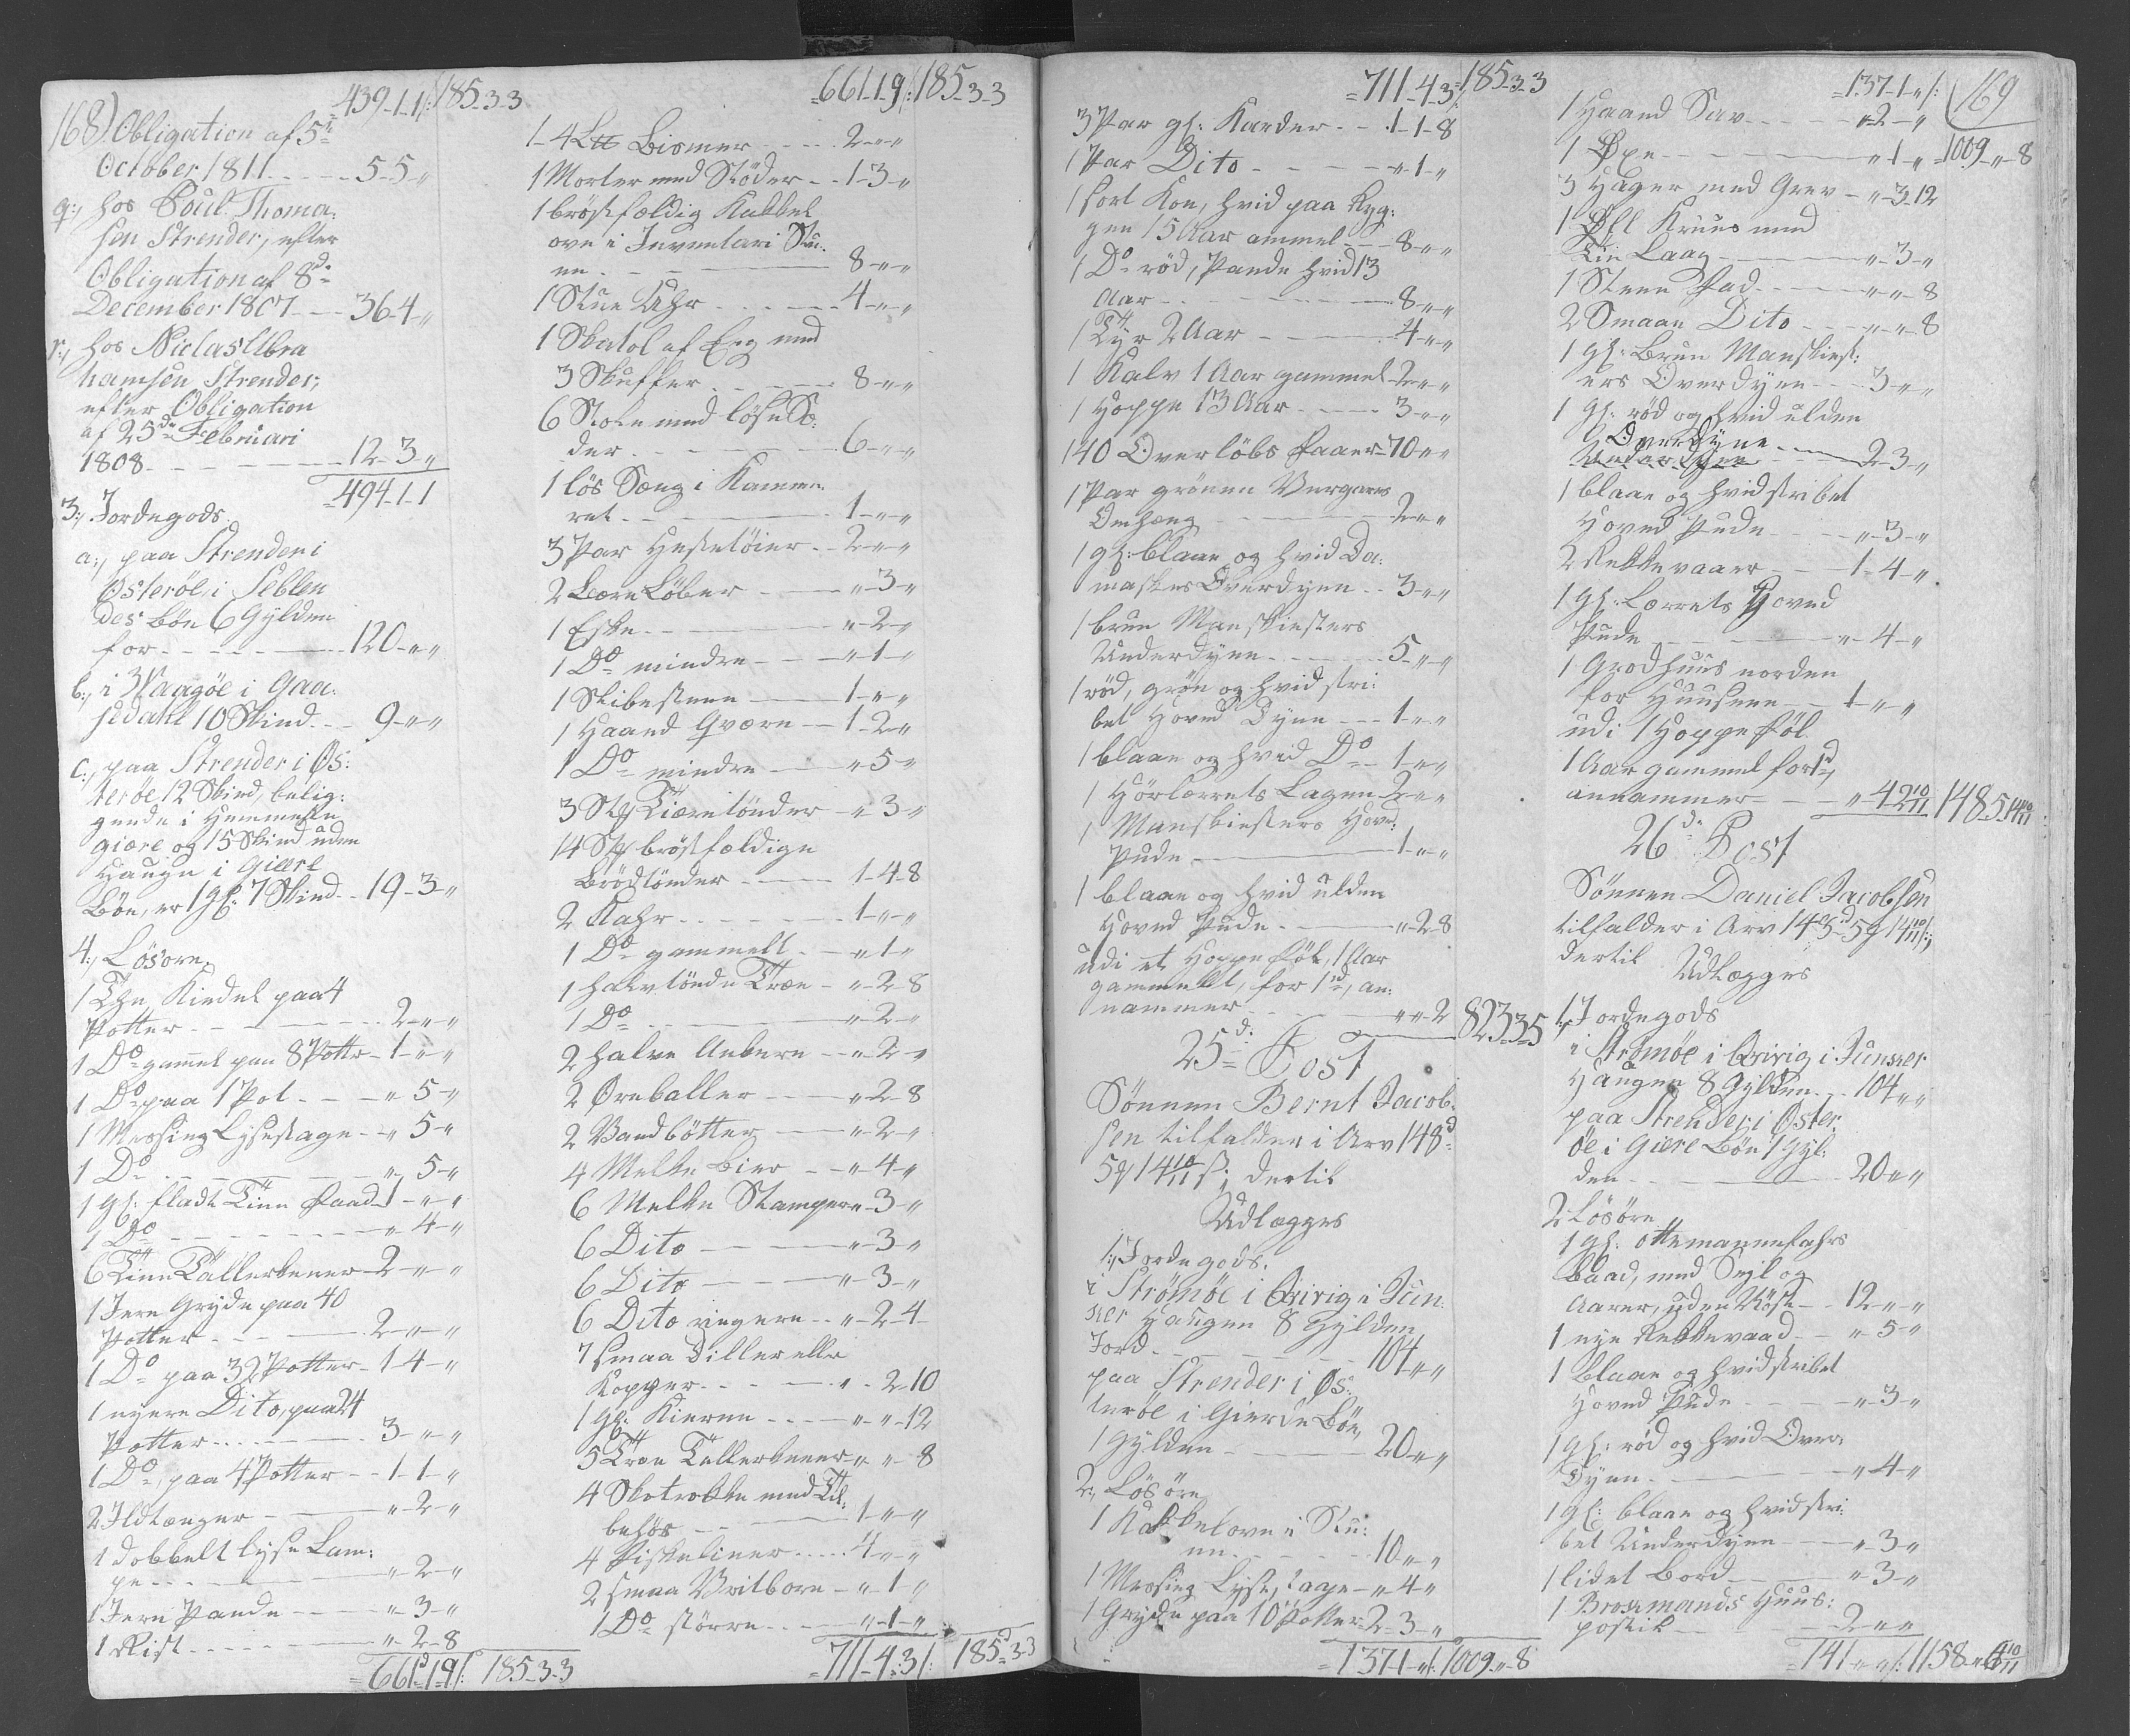 439-1-1/: 185-3-3
168) Obligation af 5te
October 1811 - - - 5-5-"
q:, hos Poul Thoma:
sen Strender, efter
Obligation af 8de
December 1807 - - 36-4-"
r:, hos Niclas Abra
hamsen Strender,
efter Obligation
af 25de Februari
1808 - - - 12-3-"
494-1-1
3:, Jordegods.
a:, paa Strender i
Österöe, i
des Bön 6 Gylden
for - - - 120-"-"
b:, i Waagöe i Gaa:
sedahl 10 Skind - - 9-"-"
c:, paa Strender i Ös:
teröe 12 Skind, belig:
gende i
giære og 15 Skind uden
Haugn i Giære
Bön, er 1 gl: 7 Skind - - 19-3-"
4:, Lösöre.
1 The Kiedel paa 4
Potter - - - 2-"-"
1 Do gammel paa 8 Potter - 1-"-"
1 Do paa 1 Pot - - " 5-"
1 Messing Lysestage - " 5-"
1 Do - - - " 5-"
1 gl: fladt Tinn Faad 1-"-"
1 Do - - - " 4-"
6 Tinn Tallerkener - 2-"-"
1 Jern Gryde paa 40
Potter - - - 2-"-"
1 Do paa 32 Potter - 1 4-"
1 nyere Dito, paa 24
Potter - - - 3-"-"
1 Do, paa 4 Potter - - 1-1-"
2 Ildtænger - - " 2-"
1 dobbelt lyse Lam:
pe - - - " 2-"
1 Jern Pande - - " 3-"
1 Rist - - - " 2-8
661-1-9/: 185-3-3
661-1-9/: 185-3-3
1-4 Ltt Bismer - - - 2-"-"
1 Morter med Stöder - - 1-3-"
1 bröstfældig Kakkel
ovn i Inventari Stu:
en - - - 8-"-"
1 Stue Uhr - - - 4-"-"
1 Skatol af Eeg med
3 Skuffer - - - 8-"-"
6 Stole med löse Sæ:
der - - - 6-"-"
1 lös Sæng i Kamme:
ret - - - 1-"-"
3 Par Hestetöier - - 2-"-"
2 Bære Löber - - " 3-"
1 Eske - - - " 2-"
1 Do mindre - - " 1-"
1 Slibesteen - - 1-"-"
1 Haand Qværn - - 1-2-"
1 Do mindre - - " 5-"
3 Stk Tiæretönder - " 3-"
14 Stk bröstfældige
Brödtönder - - - 1-4-8
2 Kahr - - - 1-"-"
1 Do gammelt - - " 1-"
1 halv tönde Træe - " 2-8
1 Do - - - " 2-"
2 halve Ankere - - " 2-"
2 Öreballer - - " 2-8
2 Vandbötter - - " 2-"
4 Melke Bier - - " 4-"
6 Melke Stamper " 3-"
6 Dito - - - " 3-"
6 Dito - - - " 3-"
6 Dito ringere - - " 2-4
7 smaa Diller eller
Kopper - - - " 2-10
1 gl: Kierne - - - " "-12
5 Træe Tallerkener " "-8
4 Skotrokke med Til:
behör - - - 1-"-"
4 Fiskeliner - - - 4-"-"
2 smaa Vritbore - " 1-"
1 Do större - - " 1-"
711-4-3/: 185-3-3
711-4-3/: 185-3-3
3 Par gl: Karder - - 1-1-8
1 Par Dito - - - " 1-"
1 sort Koe, hvid paa Ryg:
gen 15 Aar gammel - - 8-"-"
1 Do röd, Pande hvid 13
Aar - - - 8-"-"
1 Tyr 2 Aar - - - 4-"-"
1 Kalv 1 Aar gammel 2-"-"
1 Hoppe 13 Aar - - - 3-"-"
140 Overlöbs Faaer - 70-"-"
1 Par grönne Vergarns
Omhæng - - - 2-"-"
1 gl: blaae og hvid Da:
maskes Overdyne - - 3-"-"
1 brun Manskiesters
Underdyne - - - 5-"-"
1 röd, grön og hvid stri:
bet Hoved Dyne - - 1-"-"
1 blaae og hvid Do - 1-"-"
1 Hörlærrets Lagen 2-"-"
1 Manskiesters Hoved:
Pude - - - 1-"-"
1 blaae og hvid ulden
Hoved Pude - - " 2-8
udi et Hoppe Föl, 1 Aar
gammelt, for 1 d, an:
nammer - - - " " 2 823-3-5
25de Post
Sönnen Bernt Jacob:
sen tilfalder i Arv 148d
5 g 14 10/11 s; dertil
Udlægges
1:, Jordegods.
i Strömöe i Qvivig i Jun:
ker Haugen 8 Gylden
Jord - - - 104-"-"
paa Strender i Ös:
teröe i Gierde Bön,
1 Gylden - - - 20-"-"
2:, Lösöre
1 Kakkelovn i Stu:
en - - - 10-"-"
1 Messing Lysestage - " 4-"
1 Gryde paa 10 Potter 2-3-"
137-1-"/: 1009-"-8
137-1-"/: 169
1 Haand Sav - - - " 2-"
1 Öxe - - - " 1-" 1009-"-8
3 Hager med Grev - " 3-12
1 Öll Kruus med
Tin Laag - - - " 3-"
1 Steen Fad - - - " "-8
2 Smaae Dito - - - " "-8
1 gl: Brun Manskiest:
ers Overdyne - - - 3-"-"
1 gl: röd og hvid ulden
Overdyne
Underdyne - - - 2-3-"
1 blaae og hvidstribet
Hoved Pude - - - " 3-"
2 Rekkevaaer - - - 1-4-"
1 gl: Lærrets Hoved
Pude - - - " 4-"
1 Grodhuus norden
for Huusene - - 1-"-"
udi 1 Hoppe Föl
1 Aar gammel for 1 d,
annammer - - - " 4 2 10/11 148 5 14 10/11
26de Post
Sönnen Daniel Jacobsen
tilfalder i Arv 148d 5 g 14 10/11 s:,
dertil Udlægges
1:, Jordegods
i Strömöe i Qvivig i Junker
Haugen 8 Gylden - - 104-"-"
paa Strender i Öster:
öe i Giære Bön 1 Gyl:
den - - - 20-"-"
2 Lösöre
1 gl: ottemannefahrs
Baad, med Sejl og
Aarer, uden Röst - - 12-"-"
1 nye Rekkevaad - - " 5-"
1 Blaae og hvidstribet
Hoved Pude - - - " 3-"
1 gl: röd og hvid Over:
Dyne - - - " 4-"
1 gl: blaae og hvidstri:
bet Underdyne - - " 3-"
1 lidet Bord - - " 3-"
1 Huus:
postil - - - 2-"-"
141-"-"/: 1158-"-6 10/11